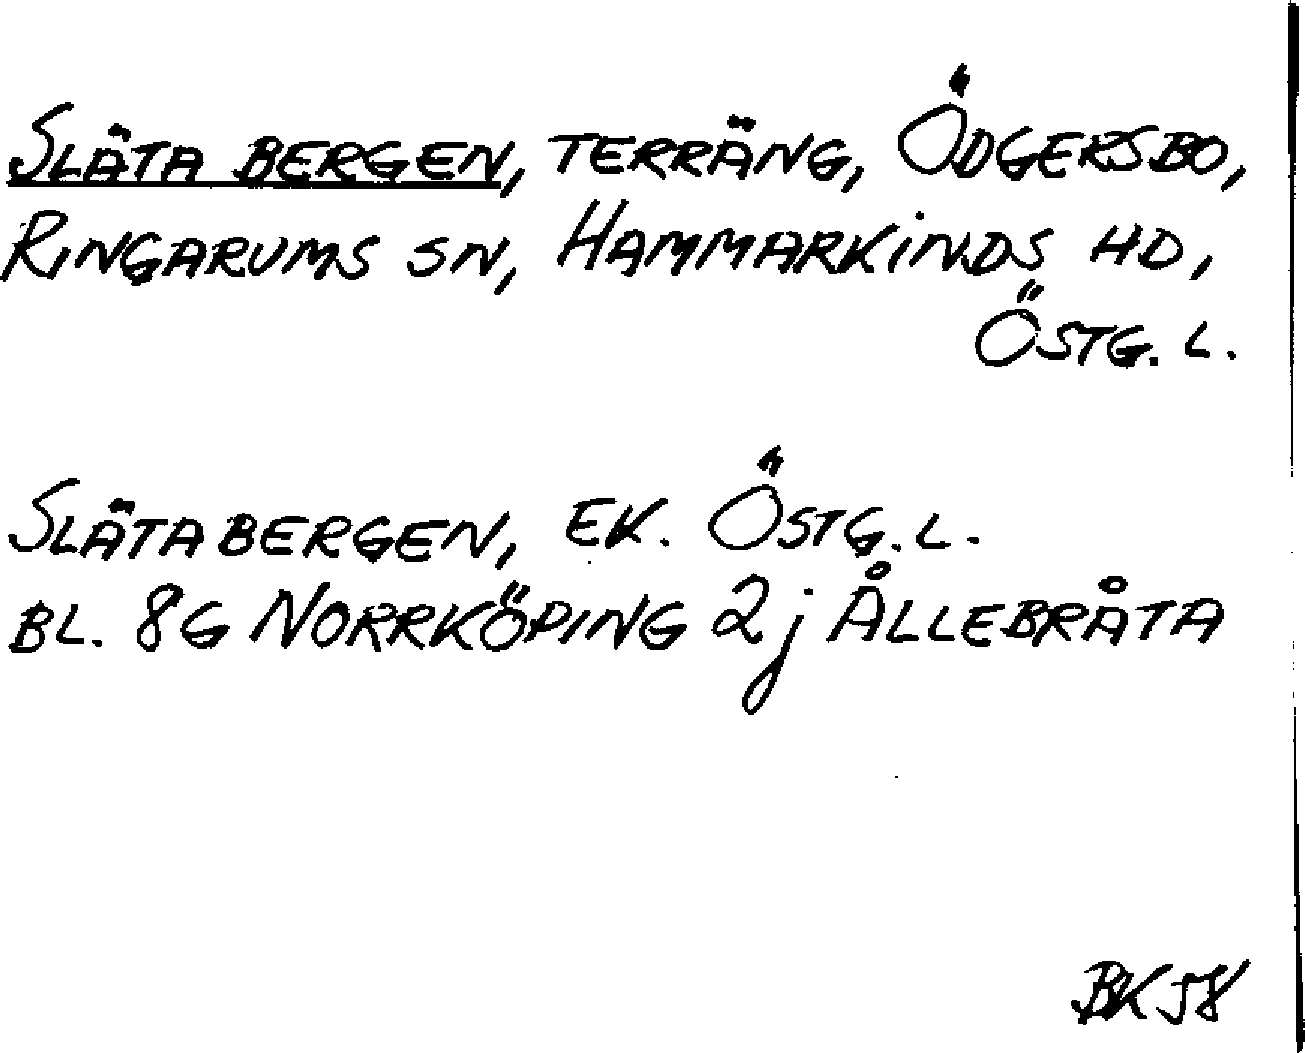 SLÄTA BERGEN, TERRÄNG, ÖDGERSBO,
RINGARUMS SN, HAMMARKINDS HD,
ÖSTG. L.
SLÄTABERGEN, EK. ÖSTG. L.
BL. 8G NORRKÖPING 2j ÅLLEBRÅTA
BK 58